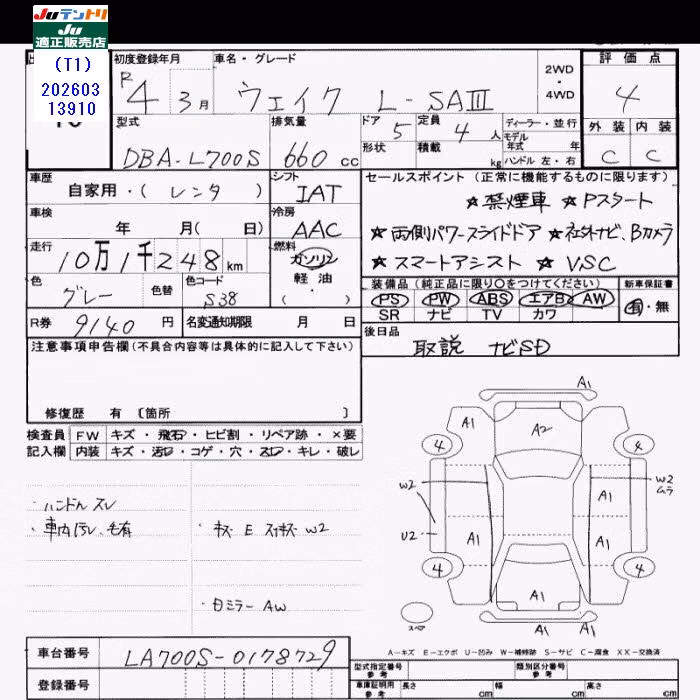 Juテントリ
Ju
適正販売店
(T1)
202603
13910
初度登録年月
R4 3月
車名・グレード
ウェイク L-SAⅢ
2WD
・
4WD
評価点
4
型式
DBA-L700S
排気量
660 cc
ドア 5
形状
定員 4 人
積載 kg
ディーラー・並行
モデル
年式 年
ハンドル 左・右
外装 内装
C C
車歴
自家用・(レンタ)
シフト
IAT
セールスポイント (正常に機能するものに限ります)
★禁煙車 ★Pスタート
車検
年 月( 日)
冷房
AAC
★両側パワースライドドア ★社外ナビ、Bカメラ
走行
10万1千248km
燃料
ガソリン
軽油
・( )
★スマートアシスト ★VSC
色
グレー
色替
色コード
S38
装備品 (純正品に限り○をつけてください)
新車保証書
PS PW ABS エアB AW
有・無
SR ナビ TV カワ
R券 9140 円
名変通知期限 月 日
後日品
取説 ナビSD
注意事項申告欄(不具合内容等は具体的に記入して下さい)
修復歴 有 〔箇所 〕
検査員 FW キズ・飛石・ヒビ割・リペア跡・×要
記入欄 内装 キズ・汚レ・コゲ・穴・スレ・キレ・破レ
・ハンドルスレ
・車内汚レ、毛有
・キズ E スリキズ W2
・日ミラー AW
A1
A1
A2
4
4
W2
W2
ムラ
A1
U2
A1
A1
4
4
A1
スペア
A1
A-キズ E-エクボ U-凹み W-補修跡 S-サビ C-腐食 XX-交換済
車台番号 LA700S-0178729
登録番号
型式指定番号
参考
類別区分番号
参考
車庫証明用
参考
長さ cm 幅 cm 高さ cm